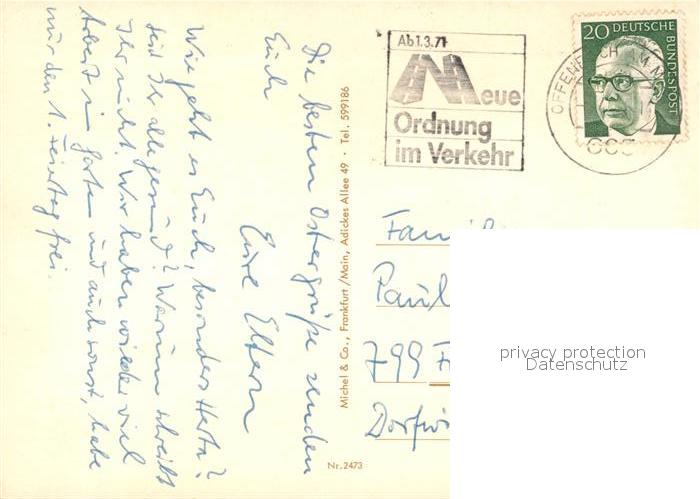 Die besten Ostergrüße senden
Euch
Eure Eltern
Wie geht es Euch, besonders Herta?
Seid Ihr alle gesund? Warum schreibt
Ihr nicht. Wir haben wieder viel
Arbeit im Garten und auch sonst, habe
nur den 1. Feiertag frei.
Michel & Co., Frankfurt/Main, Adickes Allee 49 · Tel. 599186
Nr. 2473
Ab 1.3.71
Neue
Ordnung
im Verkehr
OFFENBACH AM M
20 DEUTSCHE
BUNDESPOST
Famil
Paul
799 F
Dorfwi
privacy protection
Datenschutz